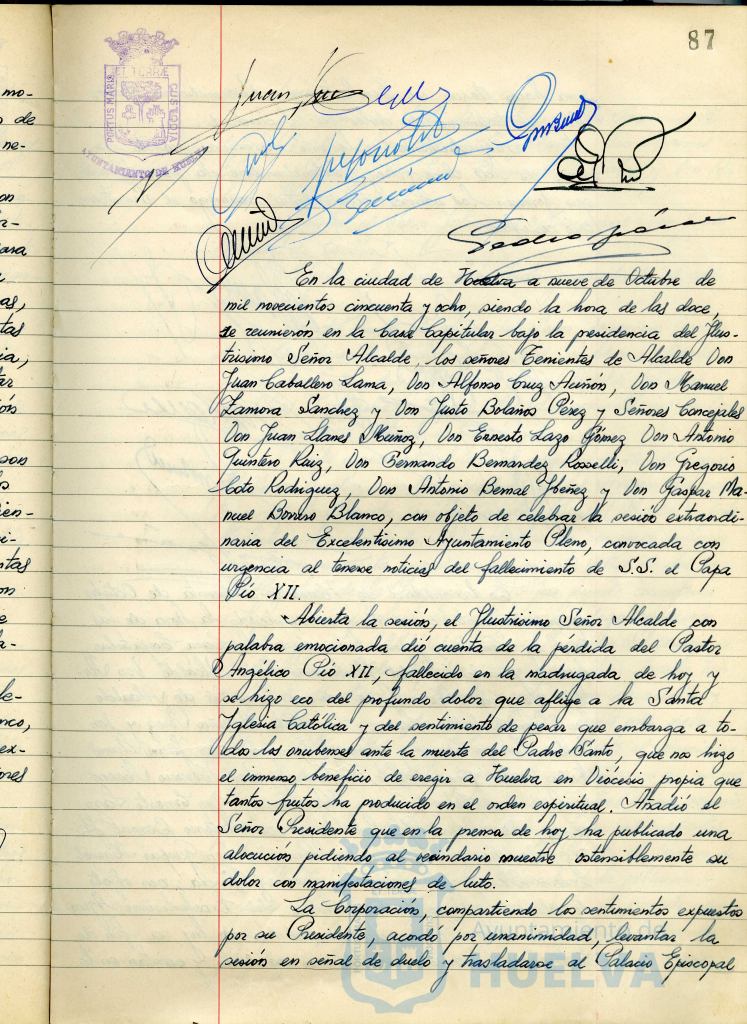 87
PORTUS MARIS ET TERRÆ CUSTODIA
AYUNTAMIENTO DE HUELVA
Juan
Pedro
En la ciudad de Huelva a nueve de Octubre de
mil novecientos cincuenta y ocho, siendo la hora de las doce,
se reunieron en la Casa Capitular bajo la presidencia del Ilus-
trisimo Señor Alcalde, los señores Tenientes de Alcalde Don
Juan Caballero Lama, Don Alfonso Cruz Auñón, Don Manuel
Zamora Sanchez y Don Justo Bolaños Pérez y Señores Concejales
Don Juan Llanes Muñoz, Don Ernesto Lazo Gómez Don Antonio
Quintero Ruiz, Don Fernando Bernardez Rosselli, Don Gregorio
Coto Rodriguez, Don Antonio Bernal Ybeñez y Don Gaspar Ma-
nuel Borrero Blanco, con objeto de celebrar la sesión extraordi-
naria del Excelentísimo Ayuntamiento Pleno, convocada con
urgencia al tenerse noticias del fallecimiento de S.S. el Papa
Pío XII.
Abierta la sesión, el Ilustrísimo Señor Alcalde con
palabra emocionada dió cuenta de la pérdida del Pastor
Angélico Pío XII, fallecido en la madrugada de hoy y
se hizo eco del profundo dolor que aflige a la Santa
Iglesia Católica y del sentimiento de pesar que embarga a to-
dos los onubenses ante la muerte del Padre Santo, que nos hizo
el inmenso beneficio de eregir a Huelva en Diócesis propia que
tantos frutos ha producido en el orden espiritual. Añadió el
Señor Presidente que en la prensa de hoy ha publicado una
alocución pidiendo al vecindario muestre ostensiblemente su
dolor con manifestaciones de luto.
La Corporación, compartiendo los sentimientos expuestos
por su Presidente, acordó por unanimidad, levantar la
sesión en señal de duelo y trasladarse al Palacio Episcopal
Ayuntamiento de
HUELVA